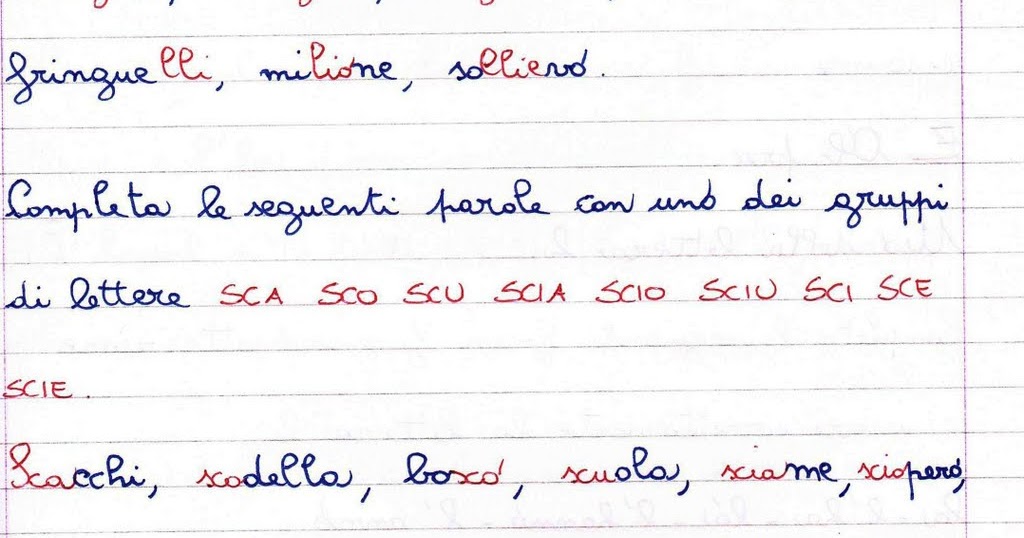 fringuelli, milione, sollievo.
Completa le seguenti parole con uno dei gruppi
di lettere SCA SCO SCU SCIA SCIO SCIU SCI SCE
SCIE.
Scacchi, scodella, bosco, scuola, sciame, sciopero,